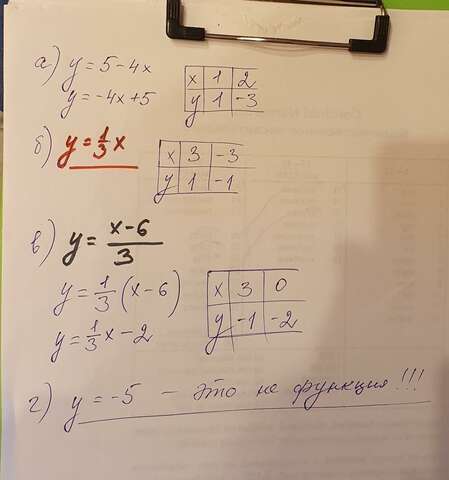 а) y = 5 - 4x
y = -4x + 5
x 1 2
y 1 -3
б) y = 1/3 x
x 3 -3
y 1 -1
в) y = x-6/3
y = 1/3 (x - 6)
y = 1/3 x - 2
x 3 0
y -1 -2
г) y = -5 — это не функция!!!